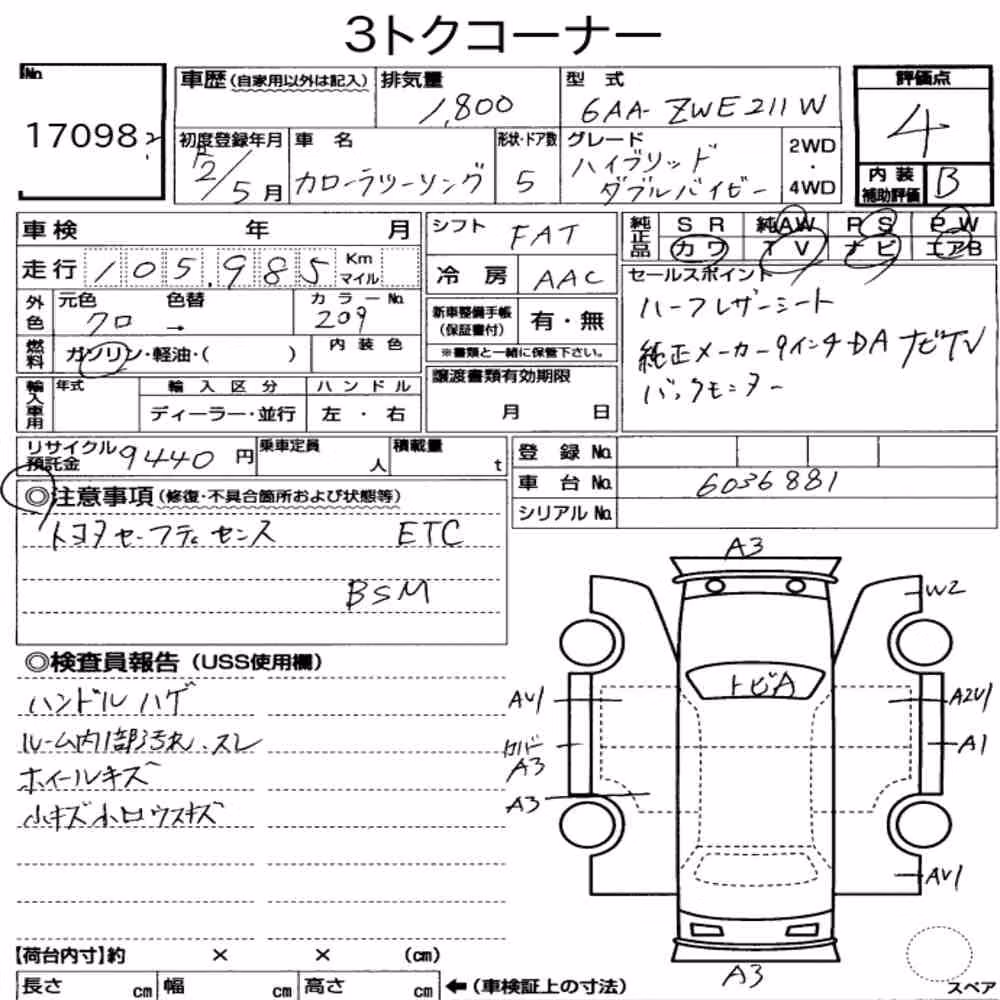 3トクコーナー
No.
17098
2
車歴(自家用以外は記入)
排気量
1,800
型 式
6AA-ZWE211W
評価点
4
内装
補助評価
B
初度登録年月
R2/5月
車 名
カローラツーリング
形状・ドア数
5
グレード
ハイブリッド
ダブルバイビー
2WD
・
4WD
車検 年 月
走行 105,985 Km
マイル
外色
元色
クロ
色替
→
カラーNo.
209
燃料
ガソリン・軽油・( )
内装色
輸入車用
年式
輸入区分
ディーラー・並行
ハンドル
左・右
シフト
FAT
冷房
AAC
新車整備手帳
(保証書付)
有・無
※書類と一緒に保管下さい。
譲渡書類有効期限
月 日
純正品
SR 純AW PS PW
カワ TV ナビ エアB
セールスポイント
ハーフレザーシート
純正メーカー9インチDAナビTV
バックモニター
リサイクル
預託金
9440円
乗車定員
人
積載量
t
登録No.
車台No.
6036881
シリアルNo.
◎注意事項(修復・不具合箇所および状態等)
トヨタセーフティセンス ETC
BSM
◎検査員報告(USS使用欄)
ハンドルハゲ
ルーム内1部汚れ、スレ
ホイールキズ
小キズ小凹ウスキズ
A3
W2
トビA
AU1
A2U1
カバー
A3
A1
A3
AU1
A3
スペア
【荷台内寸】約 × × (cm)
長さ cm 幅 cm 高さ cm ←(車検証上の寸法)